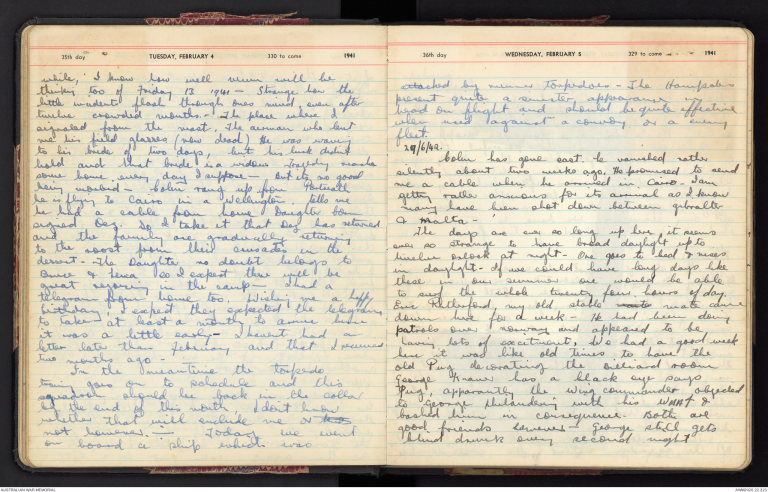 35th day
TUESDAY, FEBRUARY 4
330 to come
1941
while, I know how well mum will be
thinking too of Friday 13 1941 - Strange how the
little incidents flash through ones mind even after
twelve crowded months. - The place where I
signalled from the mast. The airman who lent
me his field glasses (now dead) He was waving
to his bride of two days, but his luck didn't
hold and that bride is a widow - Tragedy
some home, every day I suppose - but its no good
being morbid - Colin rang up from Portreath
he is flying to Cairo in a Wellington. Tells me
he had a cable from home Daughter born
signed Des. So I take it that Des has returned
and the family are gradually returning
to the roost from their crusades in the
desert - The daughter no doubt belongs to
Bruce & so I expect there will be
great rejoicing in the camp - I had a
telegram from home too. Wishing me a happy
birthday. I expect they expected the telegram
to take at least a month to arrive hence
it was a little early - I havent had a
letter later than February and that I received
two months ago -
In the meantime the torpedo
training goes on to schedule and this
squadron should be back in the collar
by the end of this month, I don't know
whether that will include me or
not however. - Today we went
on board a ship which was
36th day
WEDNESDAY, FEBRUARY 5
329 to come
1941
attacked by torpedoes - The Hampdens
present quite a sinister appearance
head on flight and should be quite effective
when used against a convoy or a enemy
fleet.
29/6/42.
Colin has gone east. He vanished rather
silently about two weeks ago. He promised to send
me a cable when he arrived in Cairo - I am
getting rather anxious for its arrival as I know
many have been shot down between Gibraltar
& Malta -
The days are ever so long up here, it seems
ever so strange to have broad daylight up to
twelve oclock at night - One goes to bed & rises
in daylight - If we could have long days like
these in our summer one would be able
to surf the whole twenty four hours of day
Eric Rutherford, my old stable mate came
down here for a week - He had been doing
patrols over Norway and appeared to be
having lots of excitement, We had a good week
here it was like old times to have the
old Pug decorating the billiard room
George Kraner has a black eye says
Pug, apparently the Wing Commander objected
to George philandering with his WAAF &
bashed him in consequence. Both are
good friends however - George still gets
blind drunk every second night
AUSTRALIAN WAR MEMORIAL